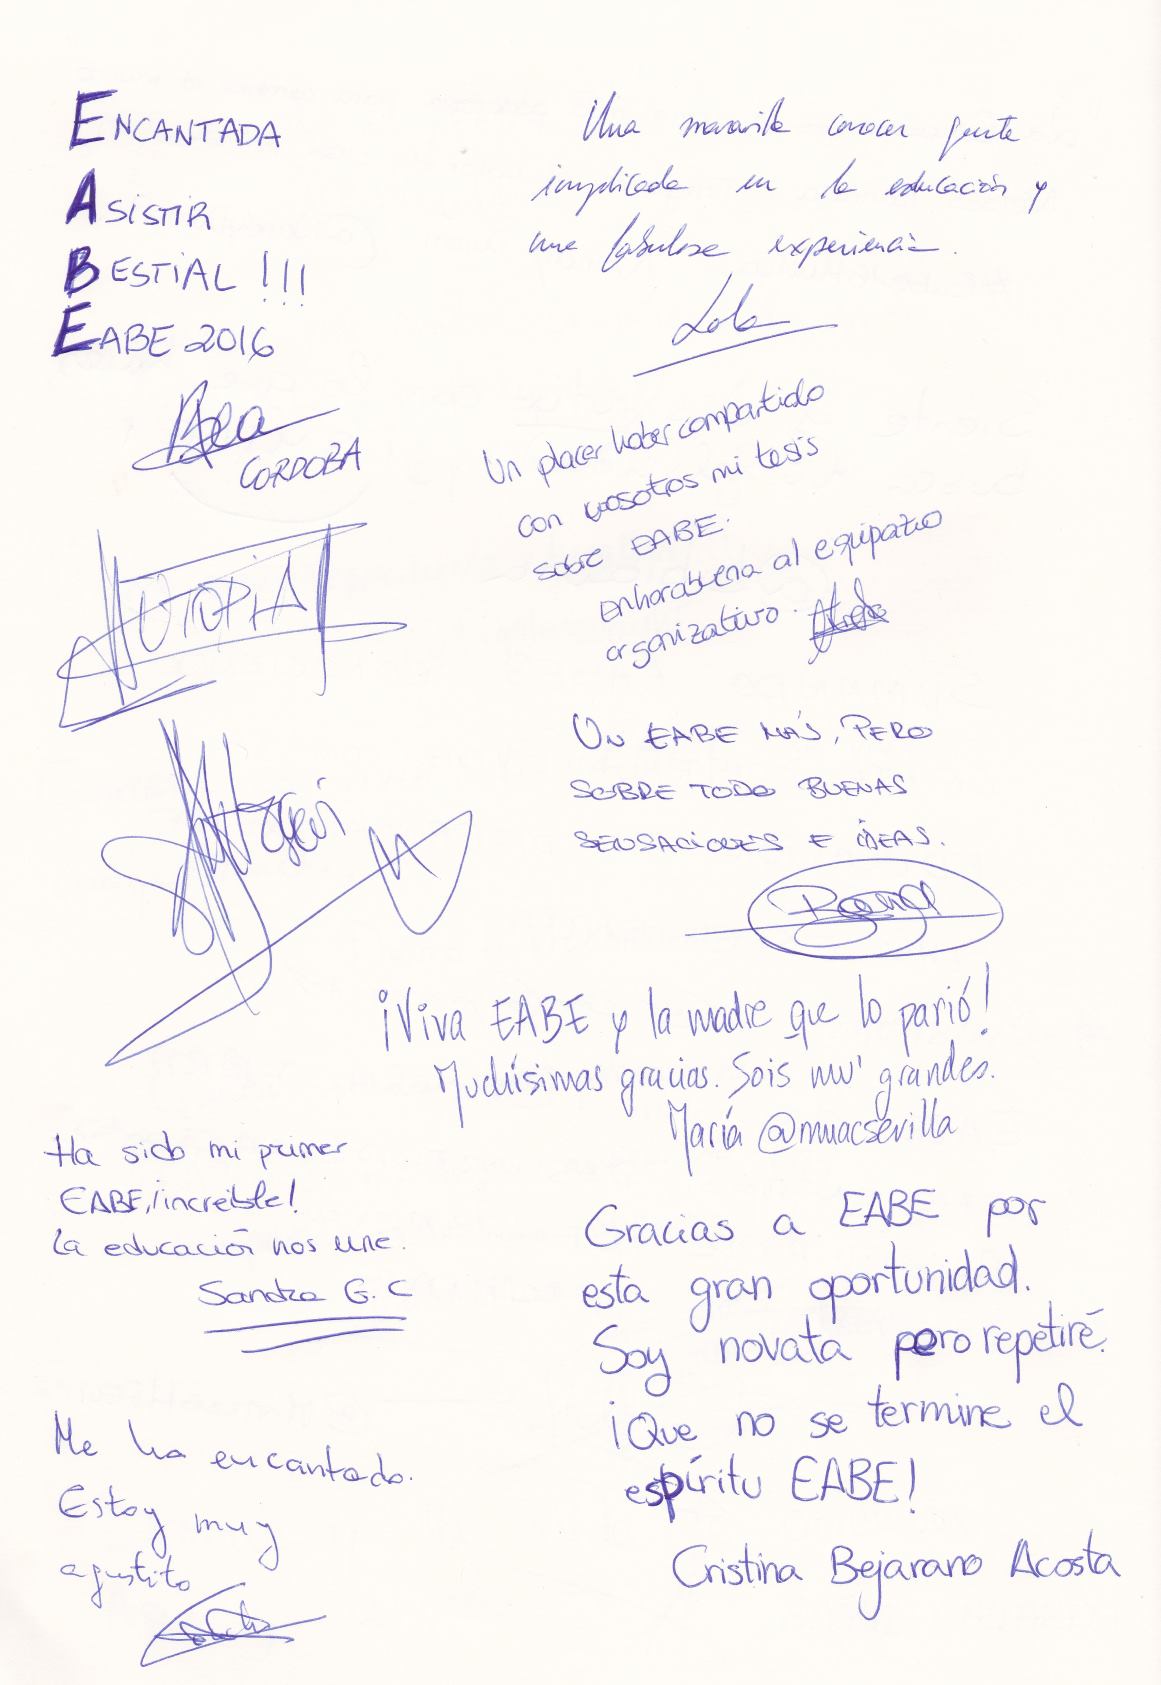 ENCANTADA
ASISTIR
BESTIAL !!!
EABE 2016
CÓRDOBA
UTOPIA
Una maravilla conocer gente
implicada en la educación y
una fabulosa experiencia.
Lola
Un placer haber compartido
con vosotros mi tesis
sobre EABE.
Enhorabuena al equipazo
organizativo.
UN EABE MÁS, PERO
SOBRE TODO BUENAS
SENSACIONES E IDEAS.
¡Viva EABE y la madre que lo parió!
Muchísimas gracias. Sois mu' grandes.
María @mmacsevilla
Ha sido mi primer
EABE, ¡increíble!
La educación nos une.
Sandra G. C
Gracias a EABE por
esta gran oportunidad.
Soy novata pero repetiré.
¡Que no se termine el
espíritu EABE!
Cristina Bejarano Acosta
Me ha encantado.
Estoy muy
agustito